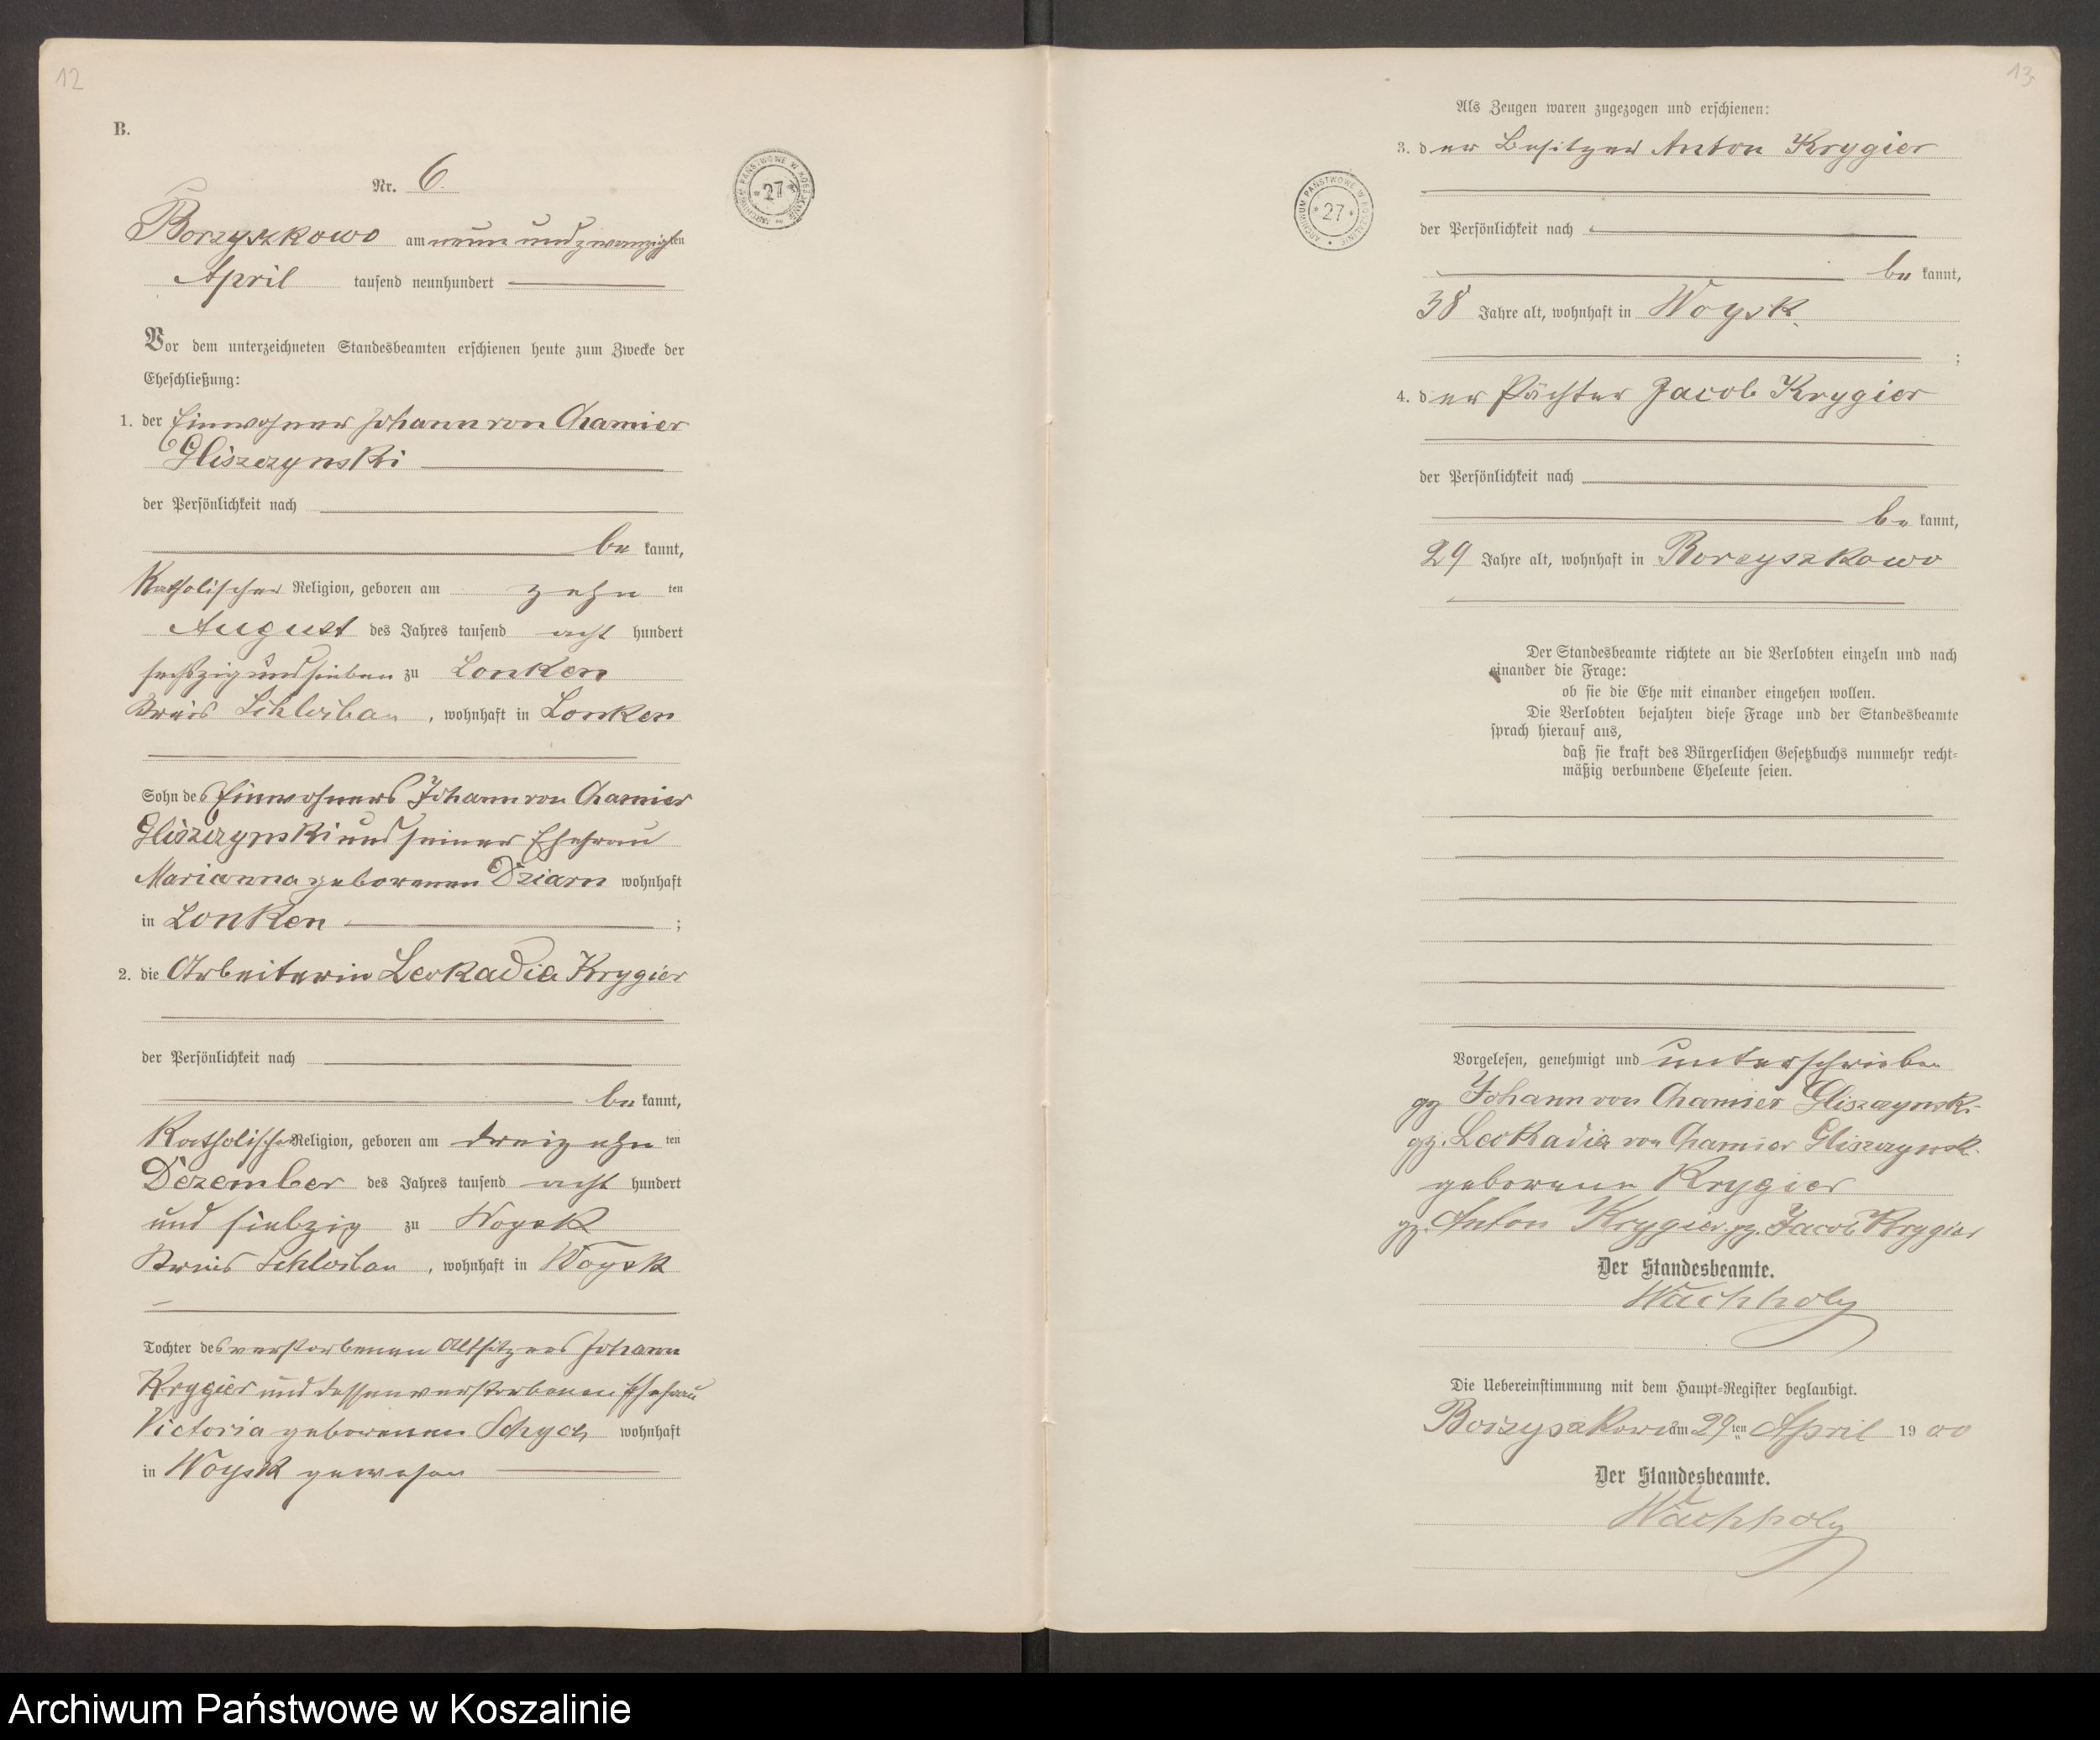 12
B.
Nr. 6.
ARCHIWUM PAŃSTWOWE W KOSZALINIE * 27 *
Borzyszkowo am neun und zwanzigsten
April tausend neunhundert
Vor dem unterzeichneten Standesbeamten erschienen heute zum Zwecke der
Eheschließung:
1. der Einwohner Johann von Chamier
Gliszczynski
der Persönlichkeit nach
be kannt,
Katholischer Religion, geboren am zehn ten
August des Jahres tausend acht hundert
sechszig und sieben zu Lonken
Kreis Schlochau, wohnhaft in Lonken
Sohn des Einwohners Johann von Chamier
Gliszczynski und seiner Ehefrau
Marianna geborenen Dziarn wohnhaft
in Lonken ;
2. die Arbeiterin Leokadia Krygier
der Persönlichkeit nach
be kannt,
Katholischer Religion, geboren am dreizehn ten
Dezember des Jahres tausend acht hundert
und siebzig zu Woysk
Kreis Schlochau, wohnhaft in Woysk
Tochter des verstorbenen Altsitzers Johann
Krygier und dessen verstorbenen Ehefrau
Victoria geborenen wohnhaft
in Woysk gewesen
13
Als Zeugen waren zugezogen und erschienen:
3. der Besitzer Anton Krygier
ARCHIWUM PAŃSTWOWE W KOSZALINIE * 27 *
der Persönlichkeit nach
be kannt,
38 Jahre alt, wohnhaft in Woysk
;
4. der Pächter Jacob Krygier
der Persönlichkeit nach
be kannt,
29 Jahre alt, wohnhaft in Borzyszkowo
Der Standesbeamte richtete an die Verlobten einzeln und nach
einander die Frage:
ob sie die Ehe mit einander eingehen wollen.
Die Verlobten bejahten diese Frage und der Standesbeamte
sprach hierauf aus,
daß sie kraft des Bürgerlichen Gesetzbuchs nunmehr recht-
mäßig verbundene Eheleute seien.
Vorgelesen, genehmigt und unterschrieben
gz Johann von Chamier Gliszczynski
gz. Leokadia von Chamier Gliszczynsk.
geborene Krygier
gz. Anton Krygier. gz. Jacob Krygier
Der Standesbeamte.
Wachholz
Die Uebereinstimmung mit dem Haupt-Register beglaubigt.
Borzyszkowo am 29 ten April 1900
Der Standesbeamte.
Wachholz
Archiwum Państwowe w Koszalinie